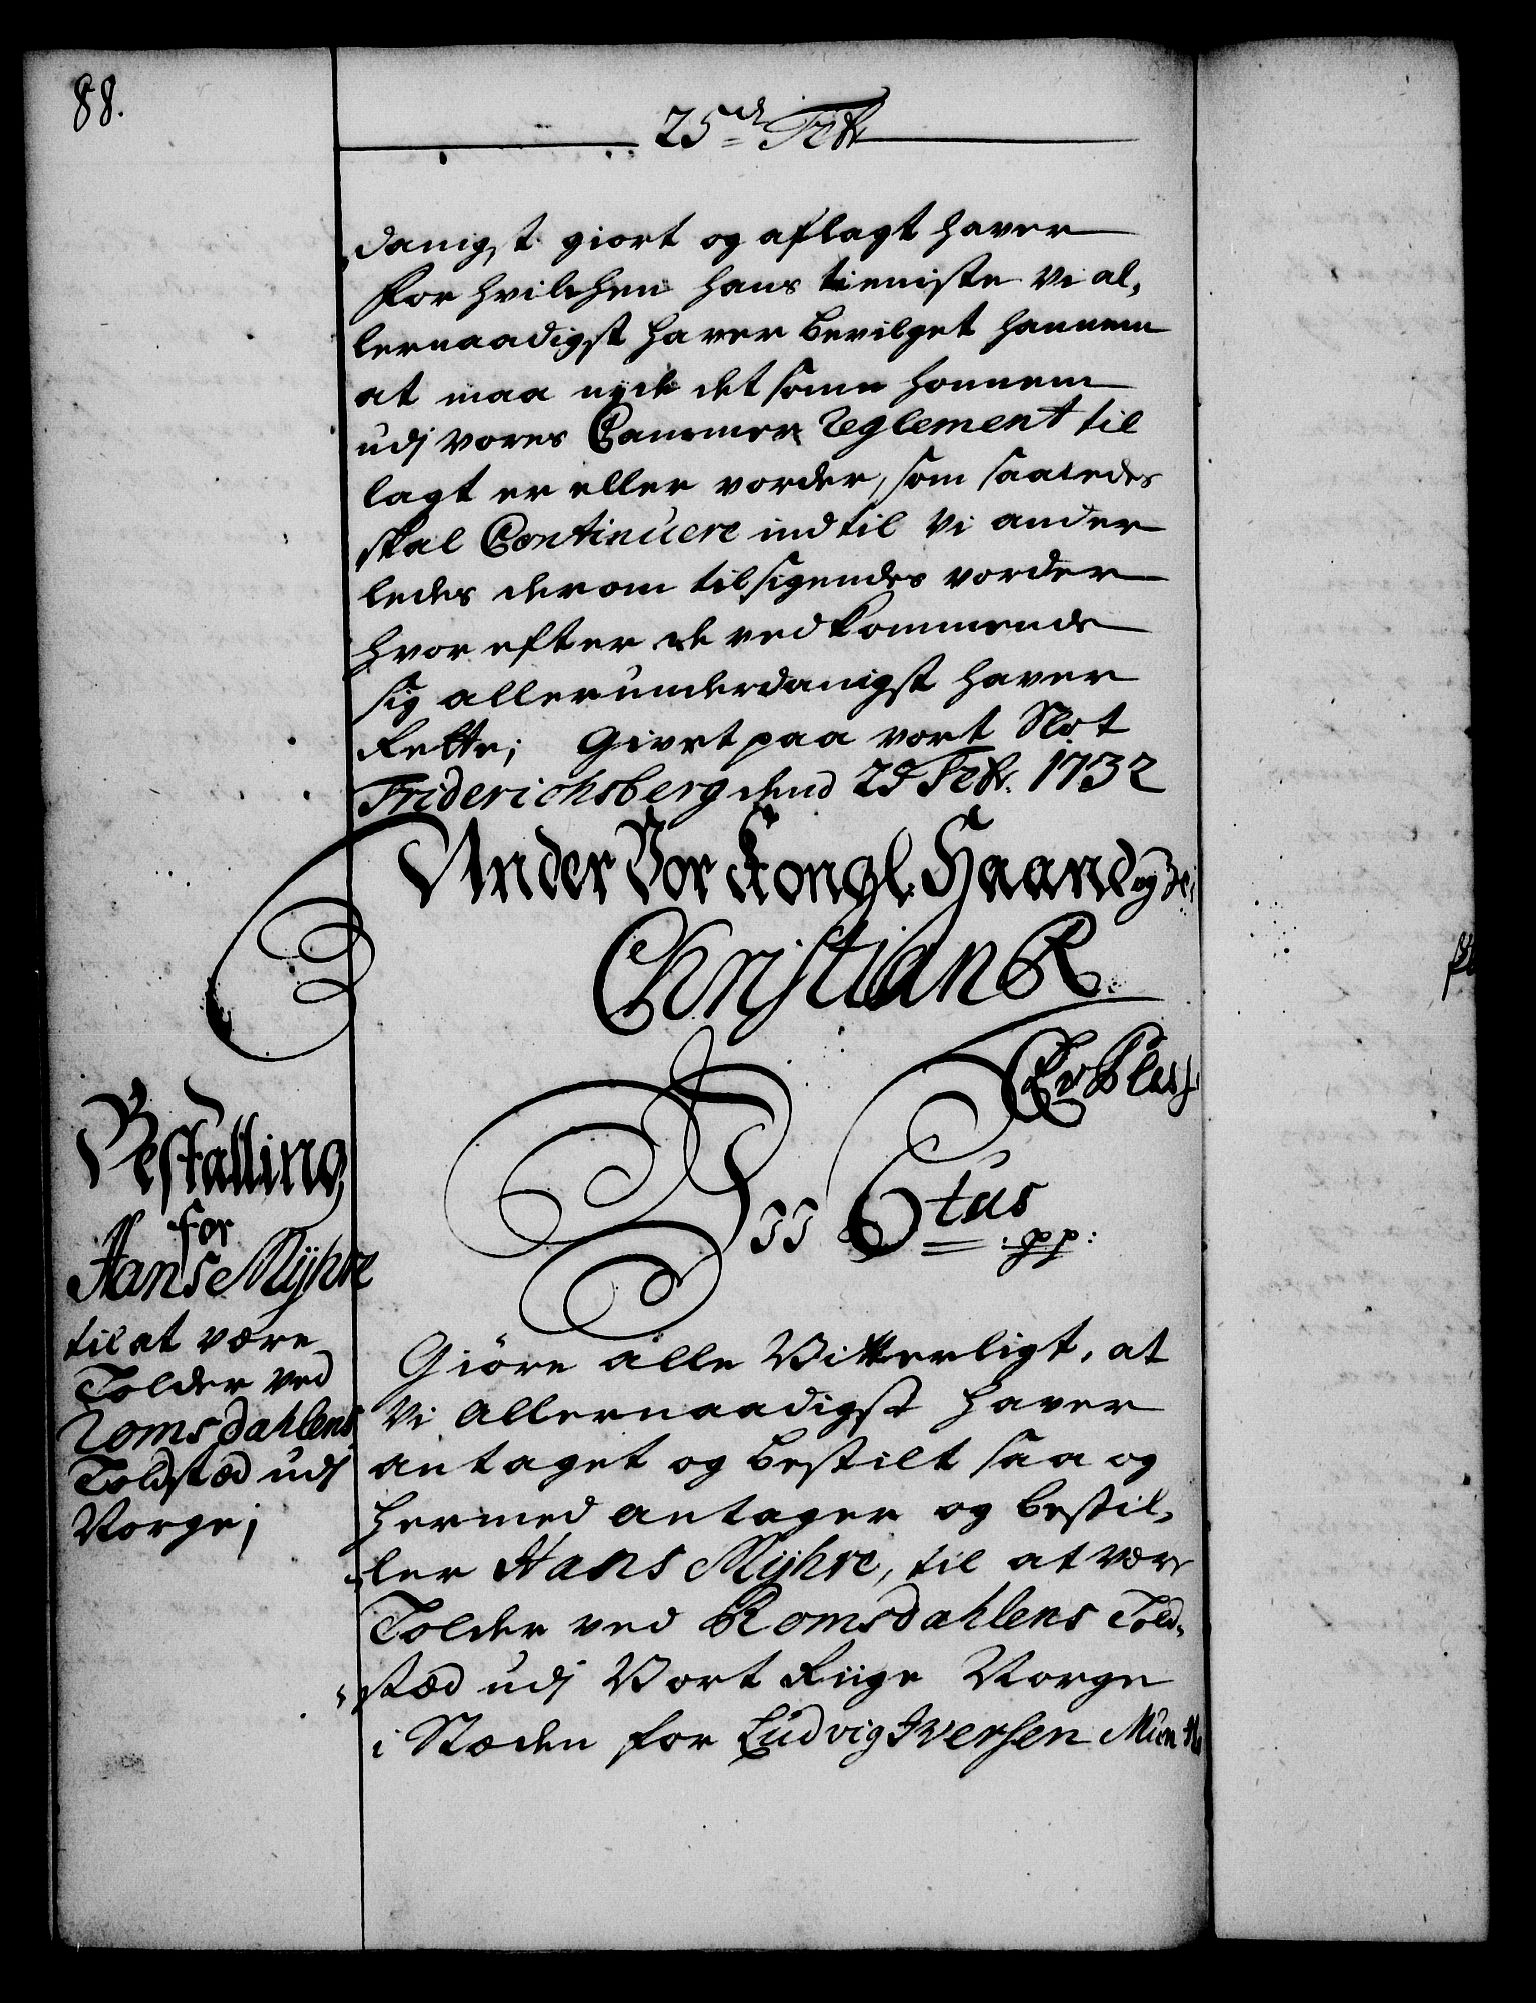 88.
25de Febr
danigst giort og aflagt haver
for hvilchen hans tieniste Vi al,
lernaadigst haver bevilget hannem
at maa nyde det samme hannem
udj vores Cammer Reglement til
lagt er eller vorder, som saaledes
skal Continuere indtil Vi ander
ledes derom tilsigendes vorder
hvor efter de vedkommende
sig allerunderdanigst haver
Rette; Givet paa vort Slot
Friderichsberg dend 25 Febr. 1732
Under Vor Kongl. Haand og
Christian R.
Bestalling
for
Hans Mÿhre
til at være
Tolder ved
Romsdahlens
Toldstæd udj
Norge;
Vii C6tus
:pp:
Giöre alle Vitterligt, at
Vi Allernaadigst haver
antaget og bestilt saa og
hermed antager og bestil,
ler Hans Mÿhre, til at være
Tolder ved Romsdahlens Told,
stæd udj Vort Riige Norge
i Stæden for Ludvig Iversen Munthe